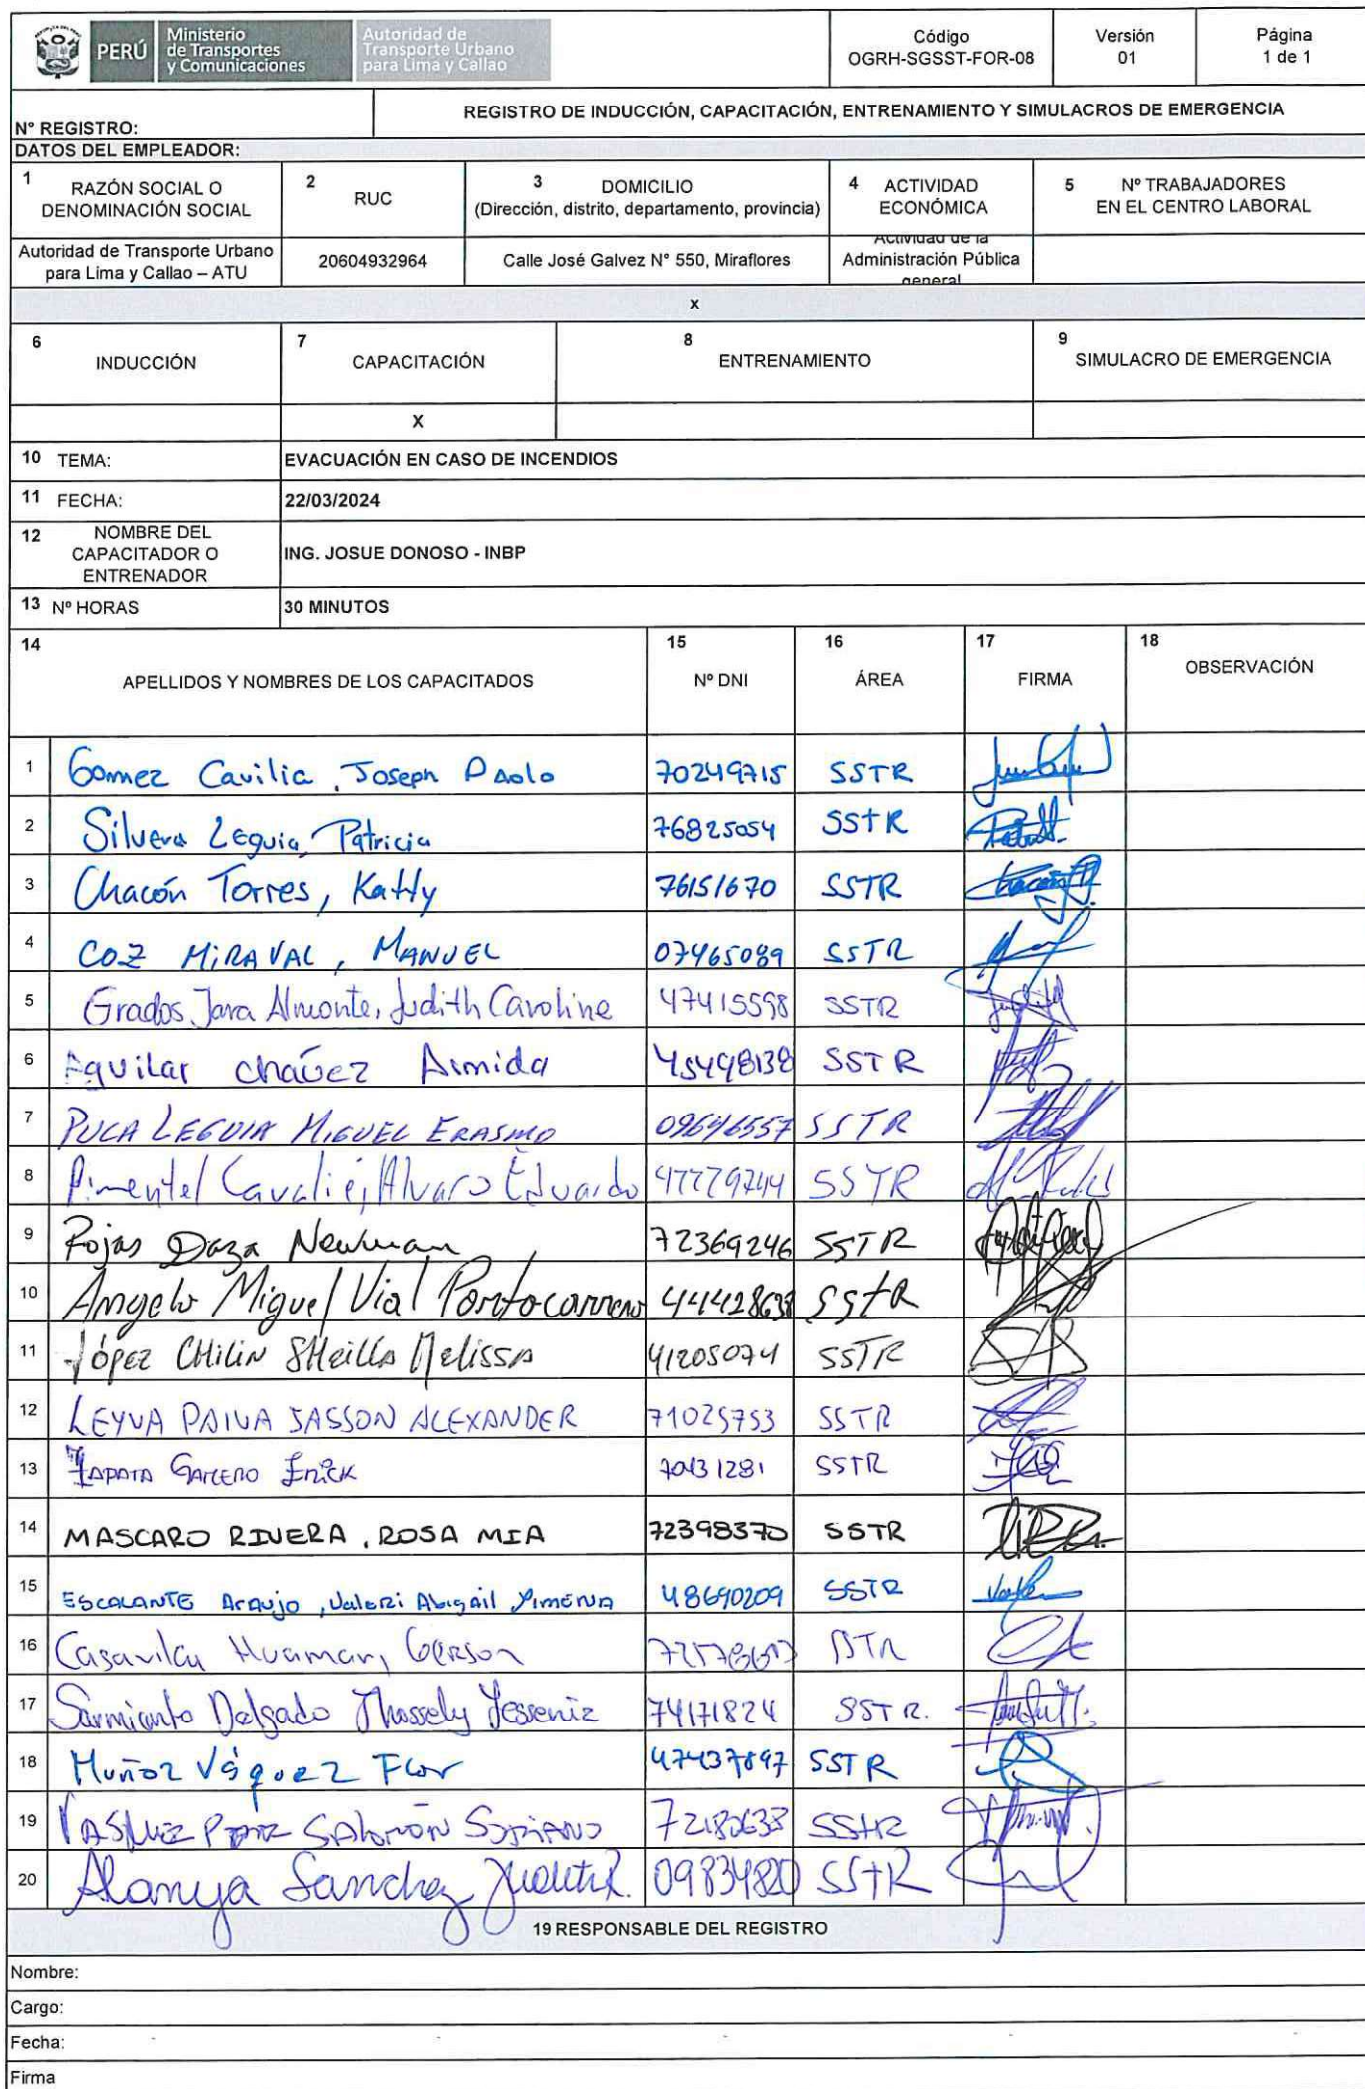 PERÚ Ministerio de Transportes y Comunicaciones Autoridad de Transporte Urbano para Lima y Callao
Código OGRH-SGSST-FOR-08
Versión 01
Página 1 de 1
Nº REGISTRO:
REGISTRO DE INDUCCIÓN, CAPACITACIÓN, ENTRENAMIENTO Y SIMULACROS DE EMERGENCIA
DATOS DEL EMPLEADOR:
1 RAZÓN SOCIAL O DENOMINACIÓN SOCIAL
2 RUC
3 DOMICILIO (Dirección, distrito, departamento, provincia)
4 ACTIVIDAD ECONÓMICA
5 Nº TRABAJADORES EN EL CENTRO LABORAL
Autoridad de Transporte Urbano para Lima y Callao – ATU
20604932964
Calle José Galvez N° 550, Miraflores
Actividad de la Administración Pública general
x
6 INDUCCIÓN
7 CAPACITACIÓN
8 ENTRENAMIENTO
9 SIMULACRO DE EMERGENCIA
X
10 TEMA: EVACUACIÓN EN CASO DE INCENDIOS
11 FECHA: 22/03/2024
12 NOMBRE DEL CAPACITADOR O ENTRENADOR ING. JOSUE DONOSO - INBP
13 Nº HORAS 30 MINUTOS
14 APELLIDOS Y NOMBRES DE LOS CAPACITADOS
15 Nº DNI
16 ÁREA
17 FIRMA
18 OBSERVACIÓN
1 Gomez Cavilia, Joseph Paolo 70249715 SSTR
2 Silvera Leguia, Patricia 76825054 SStR
3 Chacón Torres, Katty 76151670 SSTR
4 COZ MIRAVAL, MANUEL 07465089 SSTR
5 Grados Jara Almonte, Judith Caroline 47415598 SSTR
6 Aguilar chávez Armida 45498138 SSTR
7 PUCA LEGUIA MIGUEL ERASMO 09646557 SSTR
8 Pimentel Cavalié, Alvaro Eduardo 47779744 SSTR
9 Rojas Daza Newman 72369246 SSTR
10 Angelo Miguel Vial Portocarrero 44428638 SStR
11 López CHilin SHeilla Melissa 41205074 SSTR
12 LEYVA PAIVA JASSON ALEXANDER 71025753 SSTR
13 ZAPATA Erick 70431281 SSTR
14 MASCARO RIVERA, ROSA MIA 72398370 SSTR
15 ESCALANTE Araujo, Valeri Abigail Ximena 48690209 SSTR
16 Casavilca Huaman, Gerson SSTR
17 Sarmiento Delgado Thassely Yessenia 74171824 SSTR.
18 Muñoz Vásquez Flor 47437897 SSTR
19 VASQUEZ SALOMÓN 72180633 SStR
20 Alanya Sanchez Judith R. 09834820 SStR
19 RESPONSABLE DEL REGISTRO
Nombre:
Cargo:
Fecha:
Firma